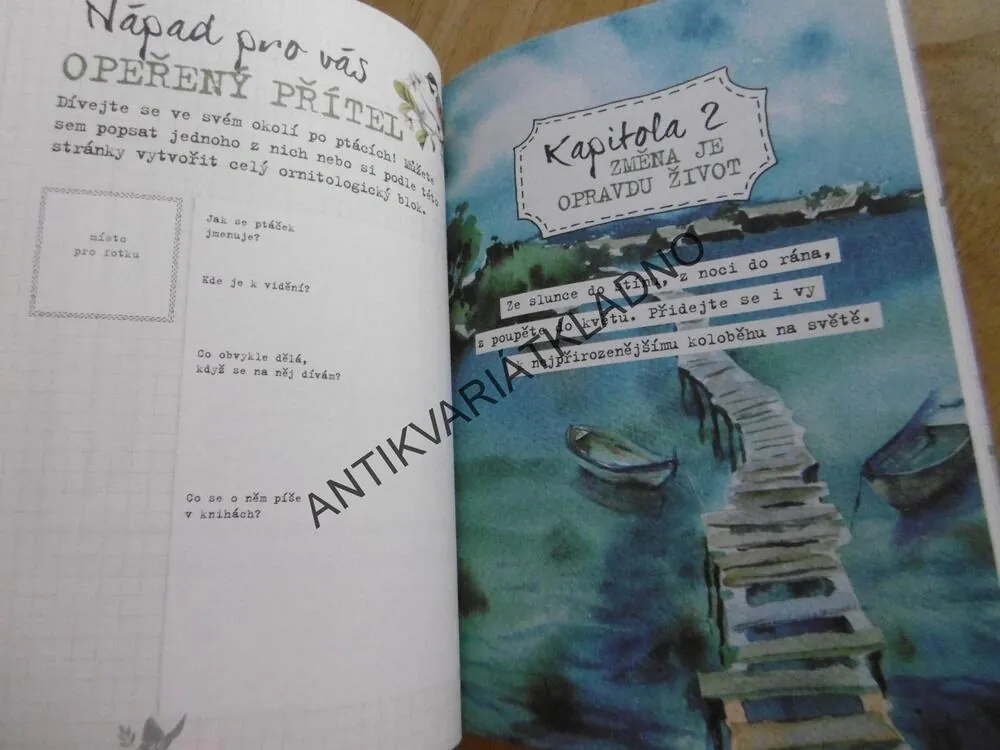 Nápad pro vás
OPEŘENÝ PŘÍTEL
Dívejte se ve svém okolí po ptácích! Můžete
sem popsat jednoho z nich nebo si podle této
stránky vytvořit celý ornitologický blok.
místo
pro fotku
Jak se ptáček
jmenuje?
Kde je k vidění?
Co obvykle dělá,
když se na něj dívám?
Co se o něm píše
v knihách?
Kapitola 2
ZMĚNA JE
OPRAVDU ŽIVOT
Ze slunce do stínu, z noci do rána,
z poupěte do květu. Přidejte se i vy
k nejpřirozenějšímu koloběhu na světě.
ANTIKVARIATKLADNO